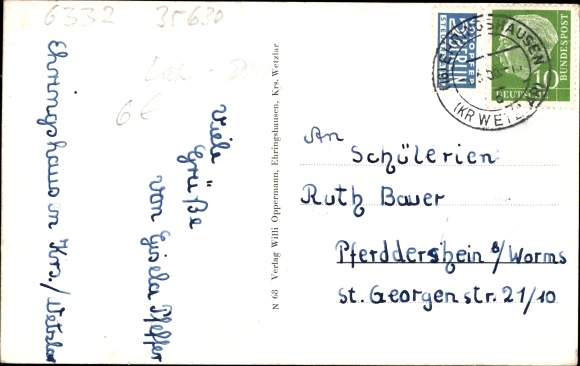 6332 35630
6 €
Ehringshausen Krs./Wetzlar
Viele
Grüße
von Gisela Pfeffer
N 68 Verlag Willi Oppermann, Ehringshausen, Krs. Wetzlar
NOTOPFER
2 BERLIN
STEUERMARKE
DEUTSCHE
BUNDESPOST
10
EHRINGSHAUSEN
(KR WETZLAR)
An
Schülerien
Ruth Bauer
Pferddersheim b/Worms
St. Georgenstr. 21/10